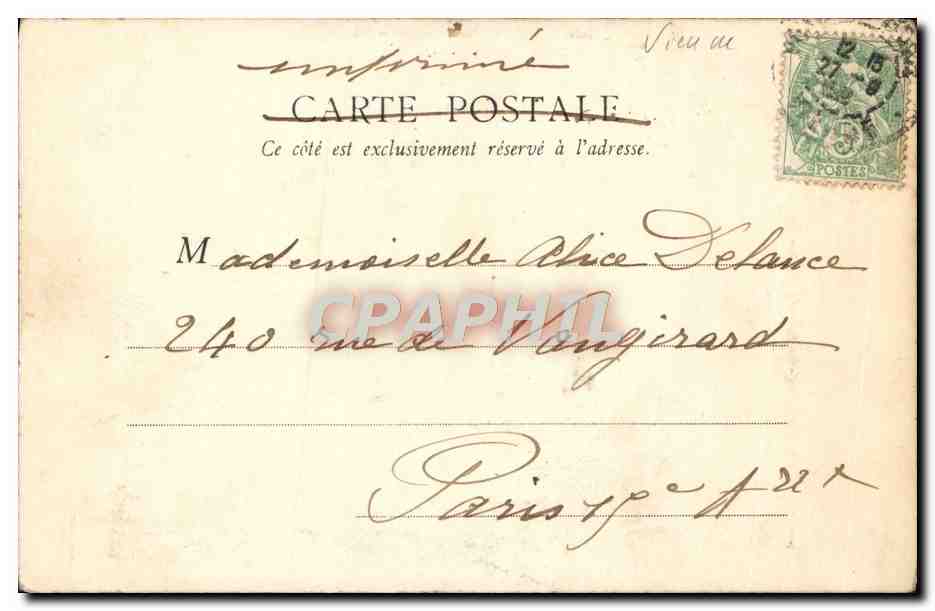 Vienne
imprimé
CARTE POSTALE
Ce côté est exclusivement réservé à l'adresse.
12 15
27 - 9
5
POSTES
Mademoiselle Alice Delance
CPAPHIL
240 rue de Vaugirard
Paris 15e Arrt